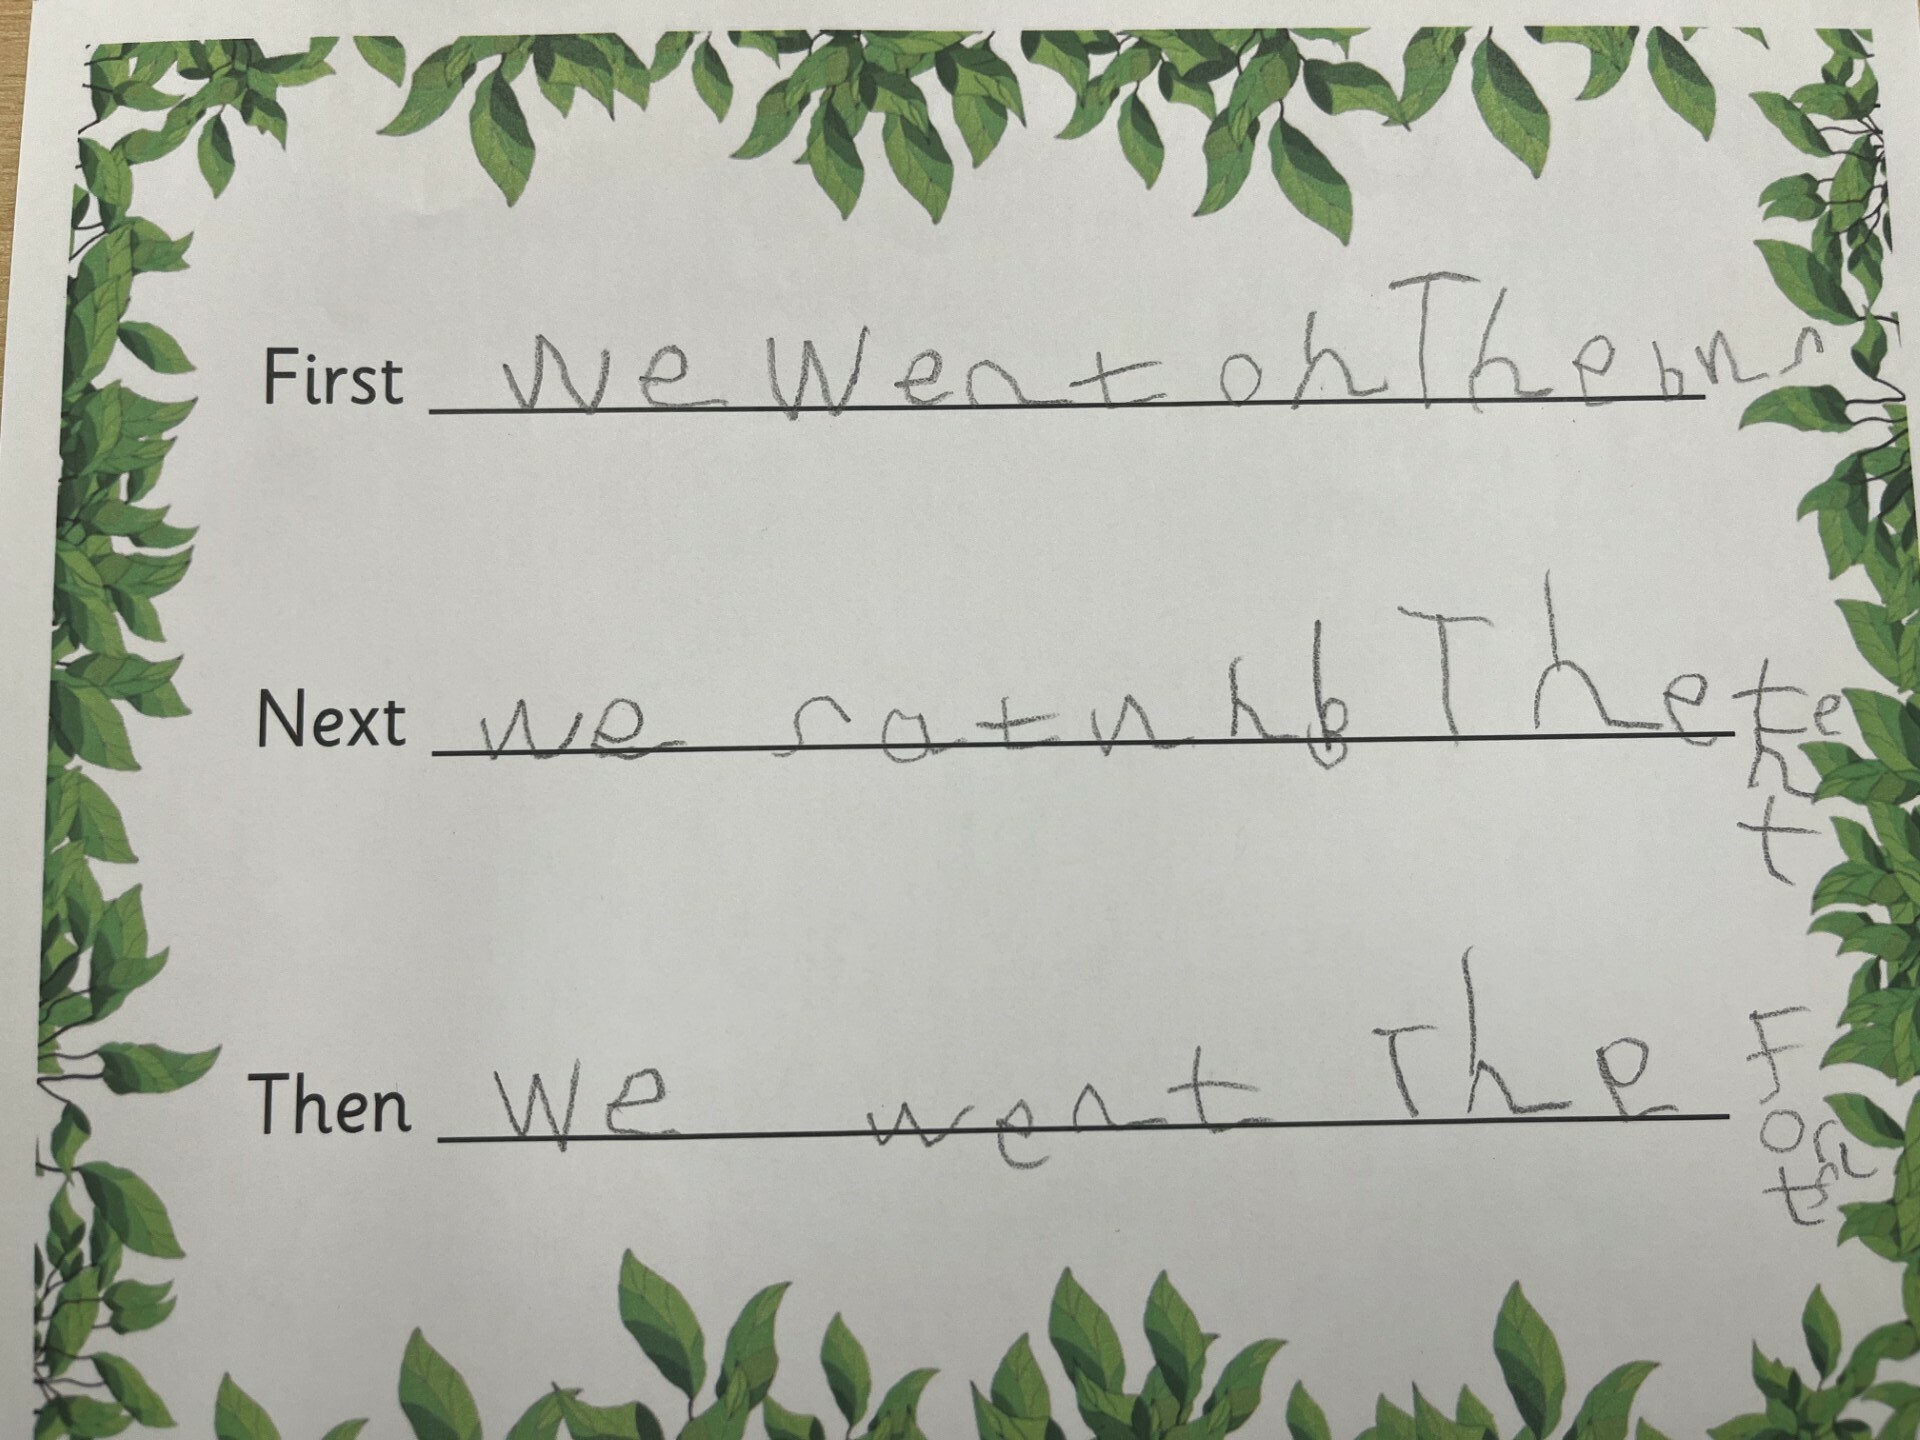 First We Went on The bus
Next we sat unb The tent
Then We went The Forst